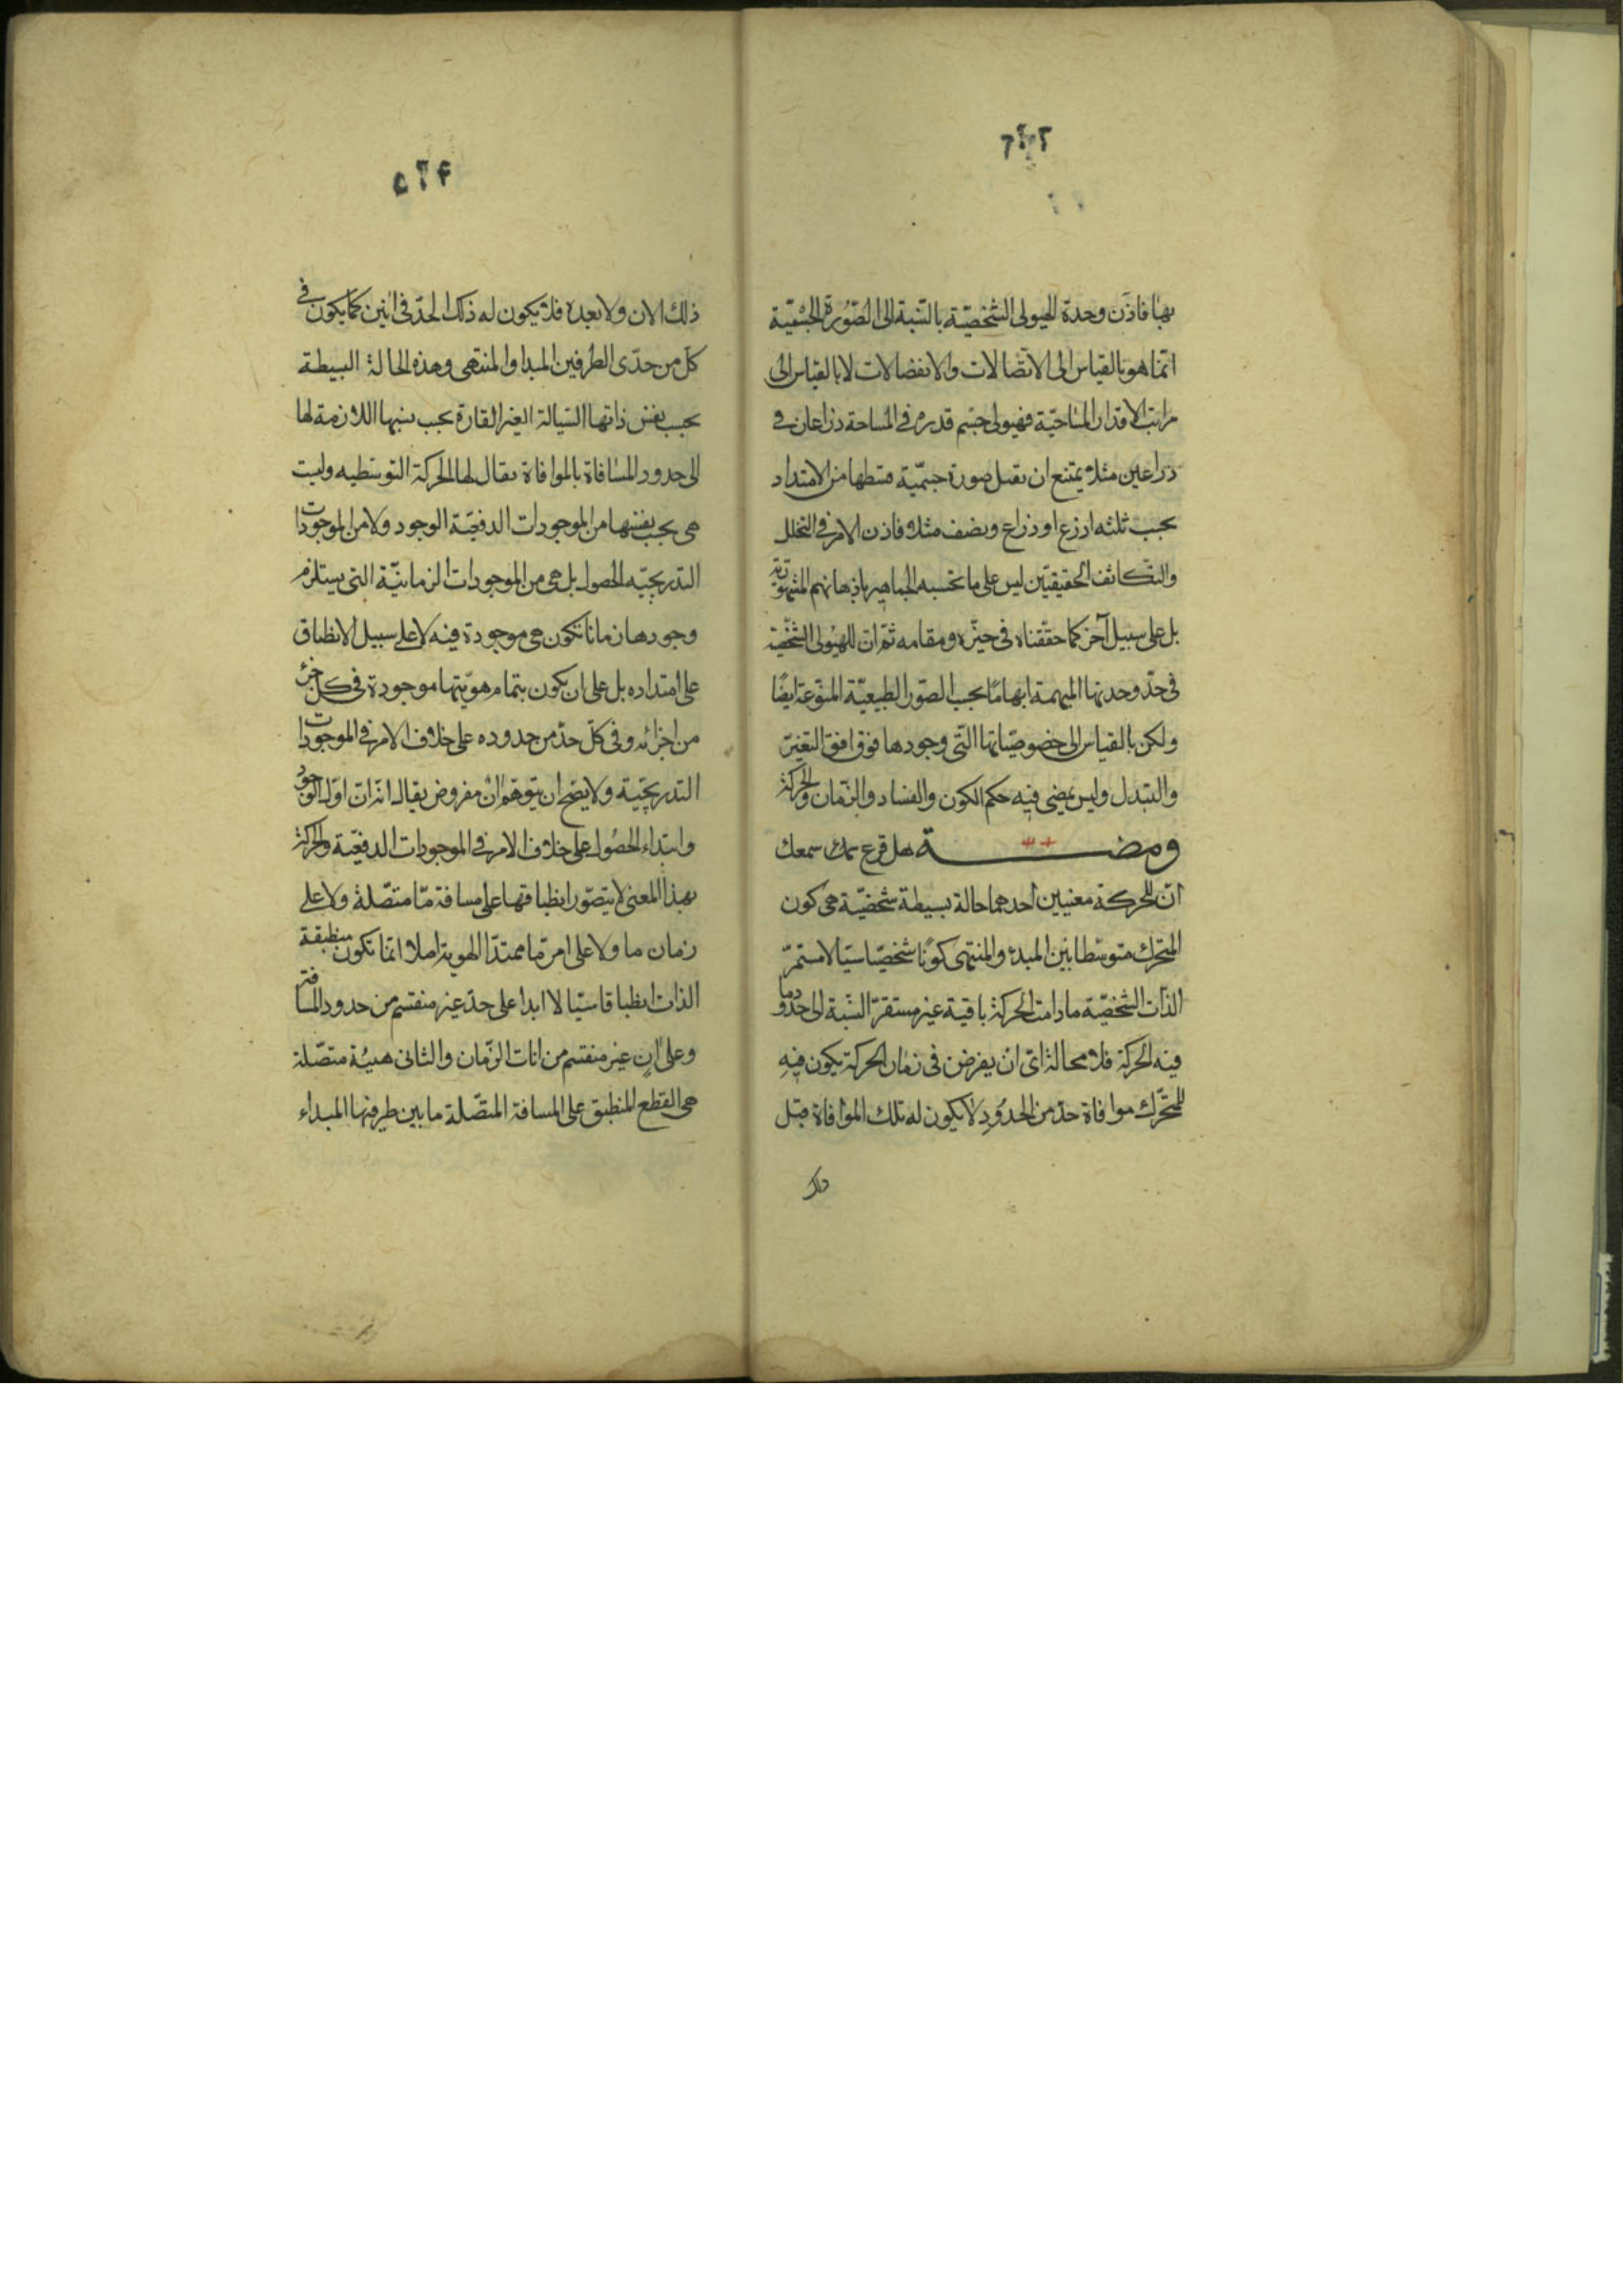 بها فاذن وحدة الهيولى الشخصيّة بالنسبة الى الصّورة الجسميّة
انّما هو بالقياس الى الاتصالات والانفصالات لا بالقياس الى
مراتب الاقدار المساحيّة فهيولى جسم قدره في المساحة ذراعان في
ذراعين مثلا يمتنع ان تقبل صورة جسميّة قسطها من الامتداد
بحسب ثلثه اذرع او ذراع ونصف مثلا فاذن الامر في التخلل
والتكاثف الحقيقيّين ليس على ما تحسبه الجماهير باذهانهم المشهورية
بل على سبيل آخر كما حقّقناه في حيّزه ومقامه ثمّ ان للهيولى الشخصيّة
في حدّ وحدتها المبهمة ابهاما بحسب الصّور الطبيعيّة المنوّعة ايضًا
ولكن بالقياس الى خصوصيّاتها التّى وجودها فوق افق التغيّر
والتبدل وليس يمضى فيه حكم الكون والفساد والزّمان والحركة
ومضة هل قرع سمعك
انّ للحركة معنيين احدهما حالة بسيطة شخصيّة هى كون
المتحرك متوسّطا بين المبدء والمنتهى كونًا شخصيّا سيّالا مستمرّ
الذات الشخصيّة ما دامت الحركة باقية غير مستقرّ النسبة الى حدود ما
فيه الحركة فلا محالة اىّ ان يفرض فى زمان الحركة يكون فيه
للمتحرّك موافاة حدّ من الحدُودِ لا يكون له تلك الموافاة قبل
ذلك
ذلك الان ولا بعده فلا يكون له ذلك الحدّ فى انين كما يكون في
كلّ من حدّى الطرفين المبدا والمنتهى وهذه الحالة البسيطة
بحسب نفس ذاتها السّيالة الغير القارة بحسب نسبتها اللازمة لها
الى حدود المسافاة بالموافاة يقال لها الحركة التوسّطيه وليست
هى بحسب نفسها من الموجودات الدفعيّة الوجود ولا من الموجودات
التدريجيّه الحصول بل هى من الموجودات الزمانيّة التى يستلزم
وجودها زمانا تكون هى موجودة فيه لا على سبيل الانطباق
على امتداده بل على ان يكون بتمام هويّتها موجودة فى كل جزء
من اجزائه وفى كلّ حدّ من حدوده على خلاف الامر في الموجودات
التدريجيّة ولا يصح ان يتوهّم انْ مفروض يقال انّه ان اوّل الوجود
وابتداء الحصُول على خلاف الامر في الموجودات الدفعيّة والحركة
بهذا المعنى لا يتصّور انطباقها على مسافة مّا متصّلة ولا على
زمان ما ولا على امر مّا ممتدّ الهوية اصلا انّما تكون منطبقة
الذات انطباقا سيّالا ابدا على حدّ غير منقسم من حدود المسافة
وعلى انٍ غير منقسم من انات الزّمان والثانى هيئة متصّلة
هى القطع المنطبق على المسافة المتصّلة ما بين طرفيها المبداء